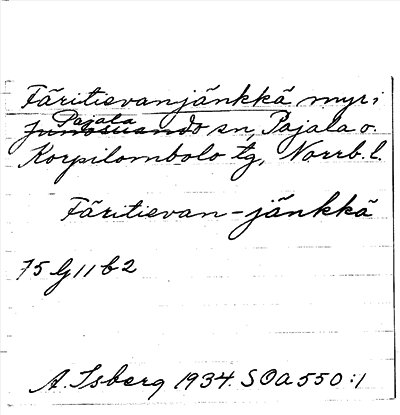 Täritievanjänkkä myr i
Pajala
Junosuando sn, Pajala o.
Korpilombolo tg, Norrb. l.
Täritievan-jänkkä
75 G 11 b 2
A. Isberg 1934. SOA 550:1